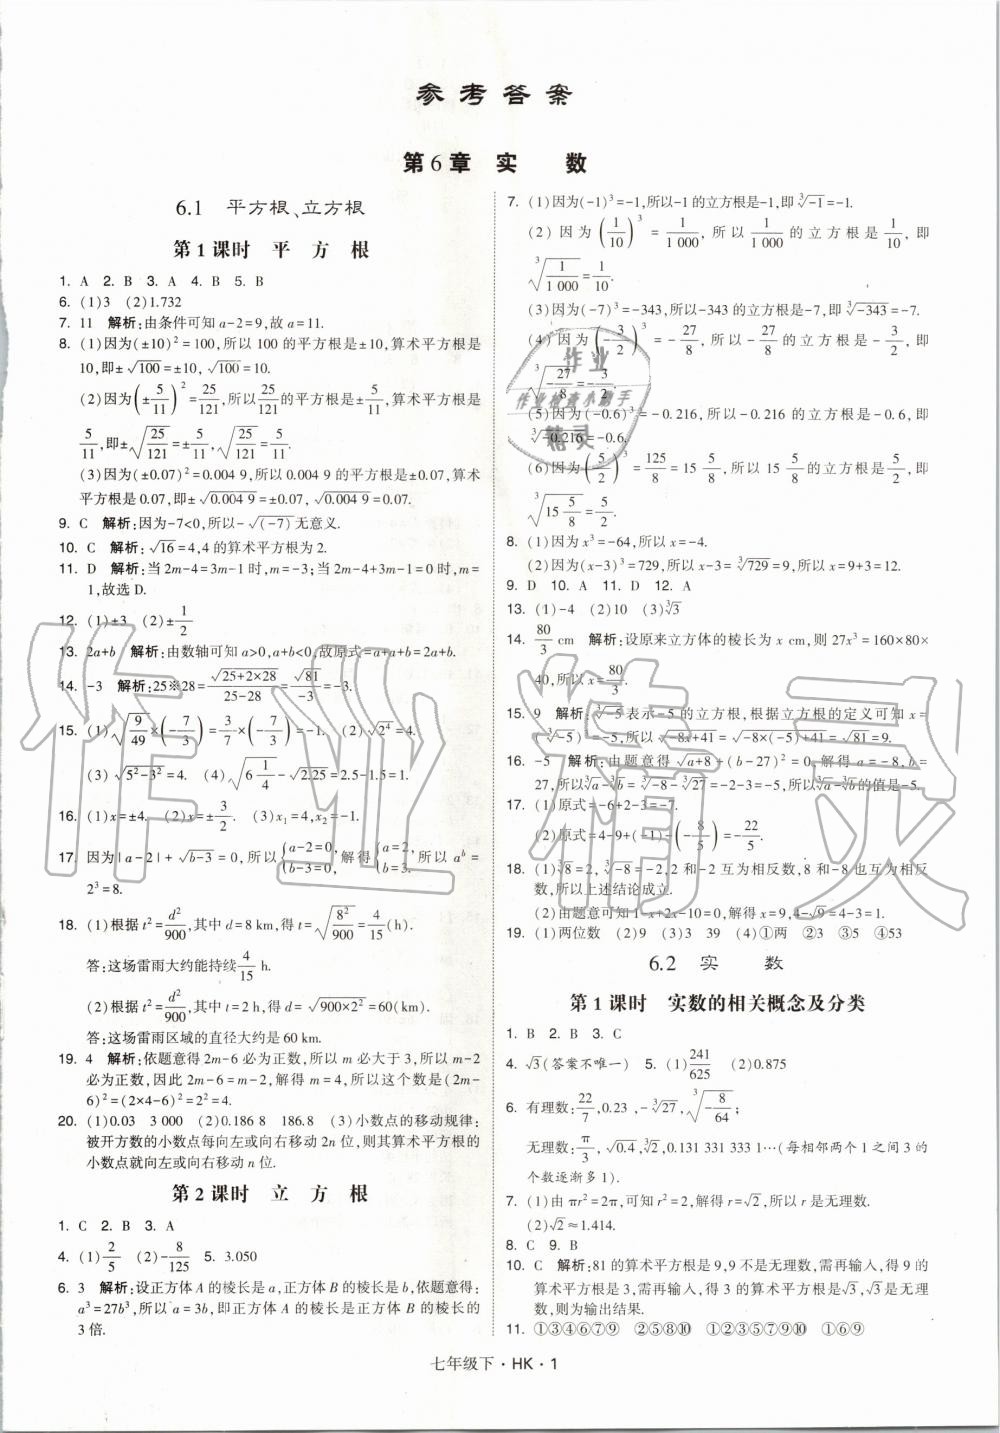 参考答案
第6章 实 数
6.1 平方根、立方根
第1课时 平 方 根
1. A 2. B 3. A 4. B 5. B
6. (1)3 (2)1.732
7. 11 解析:由条件可知 a-2=9,故 a=11.
8. (1)因为(±10)²=100,所以 100 的平方根是±10,算术平方根是
10,即±√100=±10,√100=10.
(2)因为(±5/11)²=25/121,所以25/121的平方根是±5/11,算术平方根是
5/11,即±√(25/121)=±5/11,√(25/121)=5/11.
(3)因为(±0.07)²=0.004 9,所以 0.004 9 的平方根是±0.07,算术
平方根是 0.07,即±√0.004 9=±0.07,√0.004 9=0.07.
9. C 解析:因为-7<0,所以-√(-7)无意义.
10. C 解析:√16=4,4 的算术平方根为 2.
11. D 解析:当 2m-4=3m-1 时,m=-3;当 2m-4+3m-1=0 时,m=
1,故选 D.
12. (1)±3 (2)±1/2
13. 2a+b 解析:由数轴可知 a>0,a+b>0,故原式=a+a+b=2a+b.
14. -3 解析:25※28=√(25+2×28)/(25-28)=√81/(-3)=-3.
15. (1)√(9/49)×(-7/3)=3/7×(-7/3)=-1. (2)√(2⁴)=4.
(3)√(5²-3²)=4. (4)√(6 1/4)-√2.25=2.5-1.5=1.
16. (1)x=±4. (2)x=±3/2. (3)x₁=4,x₂=-1.
17. 因为|a-2|+√(b-3)=0,所以{a-2=0, b-3=0,解得{a=2, b=3.所以 aᵇ=
2³=8.
18. (1)根据 t²=d²/900,其中 d=8 km,得 t=√(8²/900)=4/15(h).
答:这场雷雨大约能持续4/15 h.
(2)根据 t²=d²/900,其中 t=2 h,得 d=√(900×2²)=60(km).
答:这场雷雨区域的直径大约是 60 km.
19. 4 解析:依题意得 2m-6 必为正数,所以 m 必大于 3,所以 m-2
必为正数,因此 2m-6=m-2,解得 m=4,所以这个数是(2m-
6)²=(2×4-6)²=2²=4.
20. (1)0.03 3 000 (2)0.186 8 186.8 (3)小数点的移动规律:
被开方数的小数点每向左或向右移动 2n 位,则其算术平方根的
小数点就向左或向右移动 n 位.
第2课时 立 方 根
1. C 2. B 3. A
4. (1)2/5 (2)-8/125 5. 3.050
6. 3 解析:设正方体 A 的棱长是 a,正方体 B 的棱长是 b,依题意得:
a³=27b³,所以 a=3b,即正方体 A 的棱长是正方体 B 的棱长的
3 倍.
7. (1)因为(-1)³=-1,所以-1 的立方根是-1,即∛-1=-1.
(2)因为(1/10)³=1/1 000,所以1/1 000的立方根是1/10,即
∛(1/1 000)=1/10.
(3)因为(-7)³=-343,所以-343 的立方根是-7,即∛-343=-7.
(4)因为(-3/2)³=-27/8,所以-27/8的立方根是-3/2,即
∛(-27/8)=-3/2.
(5)因为(-0.6)³=-0.216,所以-0.216 的立方根是-0.6,即
∛-0.216=-0.6.
(6)因为(5/2)³=125/8=15 5/8,所以 15 5/8的立方根是5/2,即
∛(15 5/8)=5/2.
8. (1)因为 x³=-64,所以 x=-4.
(2)因为(x-3)³=729,所以 x-3=∛729=9,所以 x=9+3=12.
9. D 10. A 11. D 12. A
13. (1)-4 (2)10 (3)∛3
14. 80/3 cm 解析:设原来立方体的棱长为 x cm,则 27x³=160×80×
40,所以 x=80/3.
15. 9 解析:∛-5表示-5 的立方根,根据立方根的定义可知 x=
(∛-5)³=-5,所以√(-8x+41)=√(-8×(-5)+41)=√81=9.
16. -5 解析:由题意得√(a+8)+(b-27)²=0,解得 a=-8,b=
27,所以∛a-∛b=∛-8-∛27=-2-3=-5,所以∛a-∛b的值是-5.
17. (1)原式=-6+2-3=-7.
(2)原式=4-9+(-1)-(-8/5)=-22/5.
18. (1)∛8=2,∛-8=-2,2 和-2 互为相反数,8 和-8 也互为相反
数,所以上述结论成立.
(2)由题意可知 1-x+2x-10=0,解得 x=9,4-√9=4-3=1.
19. (1)两位数 (2)9 (3)3 39 (4)①两 ②3 ③5 ④53
6.2 实 数
第1课时 实数的相关概念及分类
1. B 2. B 3. C
4. √3(答案不唯一) 5. (1)241/625 (2)0.875
6. 有理数:22/7,0.23,-∛27,∛(-8/64);
无理数:π/3,√0.4,∛2,0.131 331 333 1…(每相邻两个 1 之间 3 的
个数逐渐多 1).
7. (1)由 πr²=2π,可知 r²=2,解得 r=√2,所以 r 是无理数.
(2)√2≈1.414.
8. C 9. B
10. C 解析:81 的算术平方根是 9,9 不是无理数,需再输入,得 9 的
算术平方根是 3,需再输入,得 3 的算术平方根是√3,√3是无理
数,则为输出结果.
11. ①③④⑥⑦⑨ ②⑤⑧⑩ ①②③⑤⑦⑨⑩ ①⑥⑨
七年级下·HK·1
作业精灵
作业
作业检查小助手
精灵